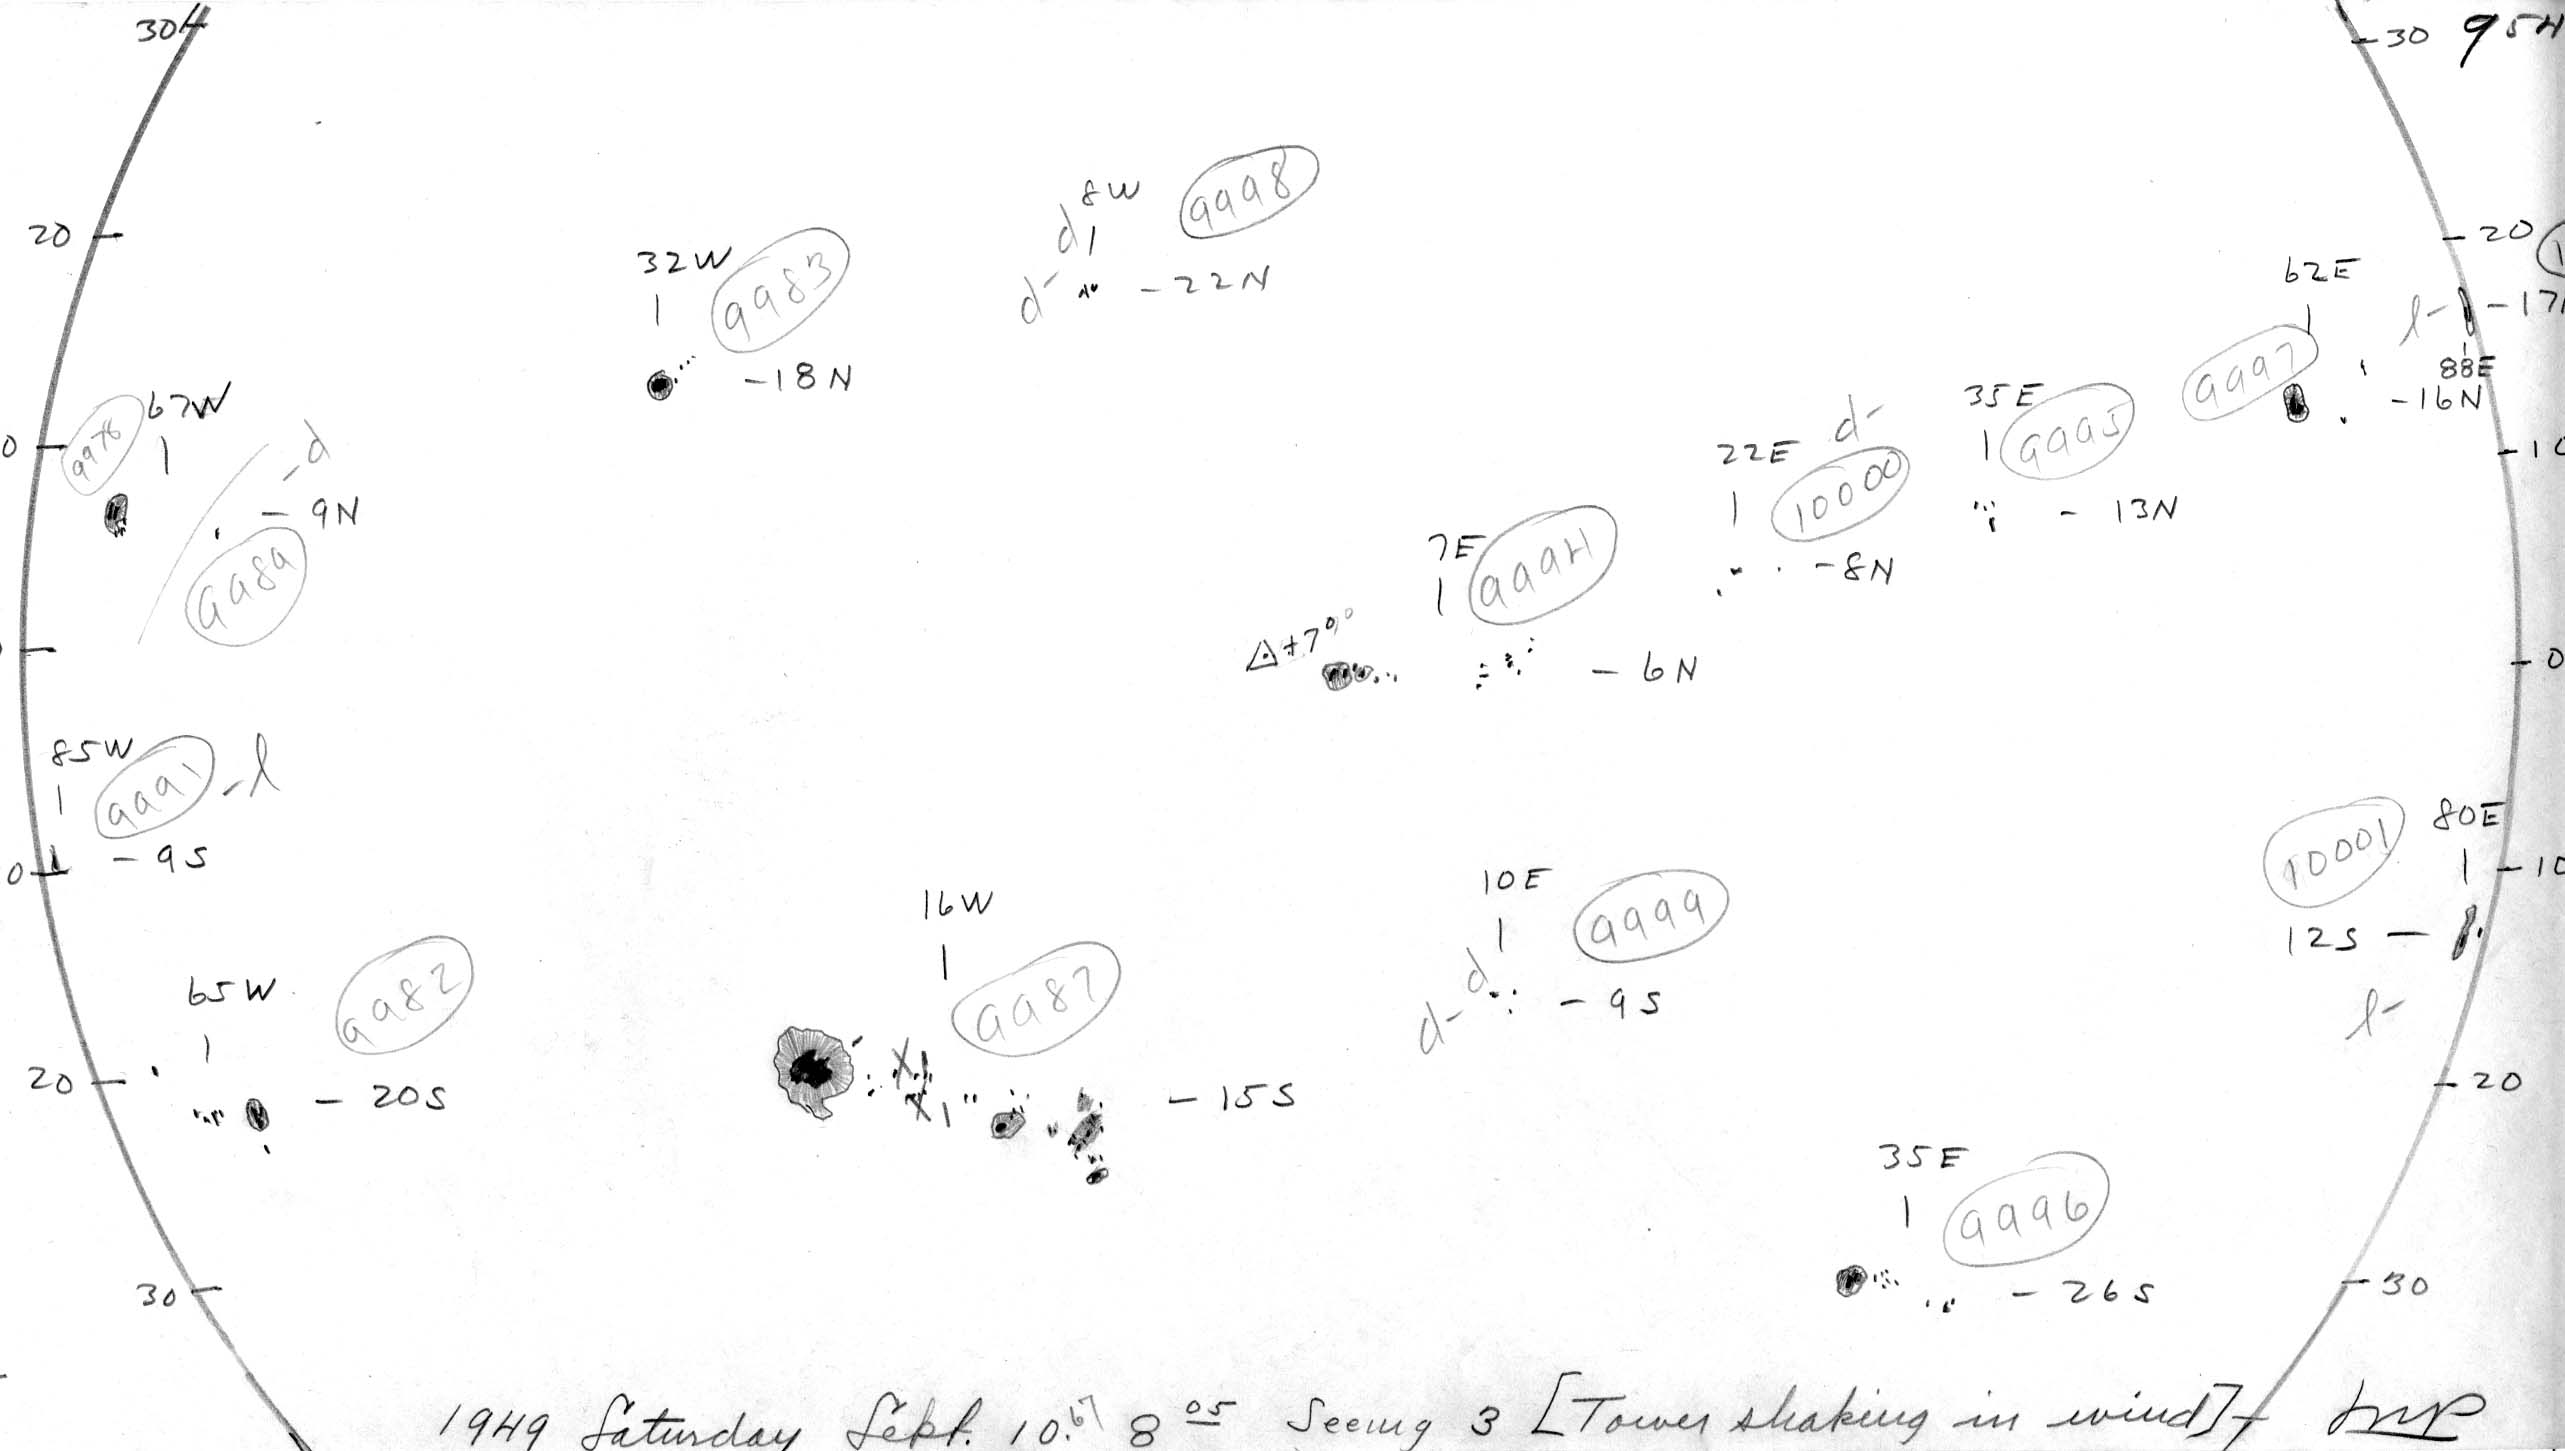 30
30 954
8W 9998
d
20
32W 9983
d- -22N
20
62E
l- -17
-18N
88E
9997
-16N
67W
9976
35E
d-
22E 9995
10
-d
-9N
10000
-13N
7E 9994
-8N
9989
△+7°
-6N
0
85W
9991 -l
-9S
80E
10001
10
10E 9999
16W
12S -
65W 9982
9987
d
d- -9S
l-
20
-20S
-15S
20
35E
9996
30
-26S
30
1949 Saturday Sept. 10.67 8 05 Seeing 3 [Tower shaking in wind]